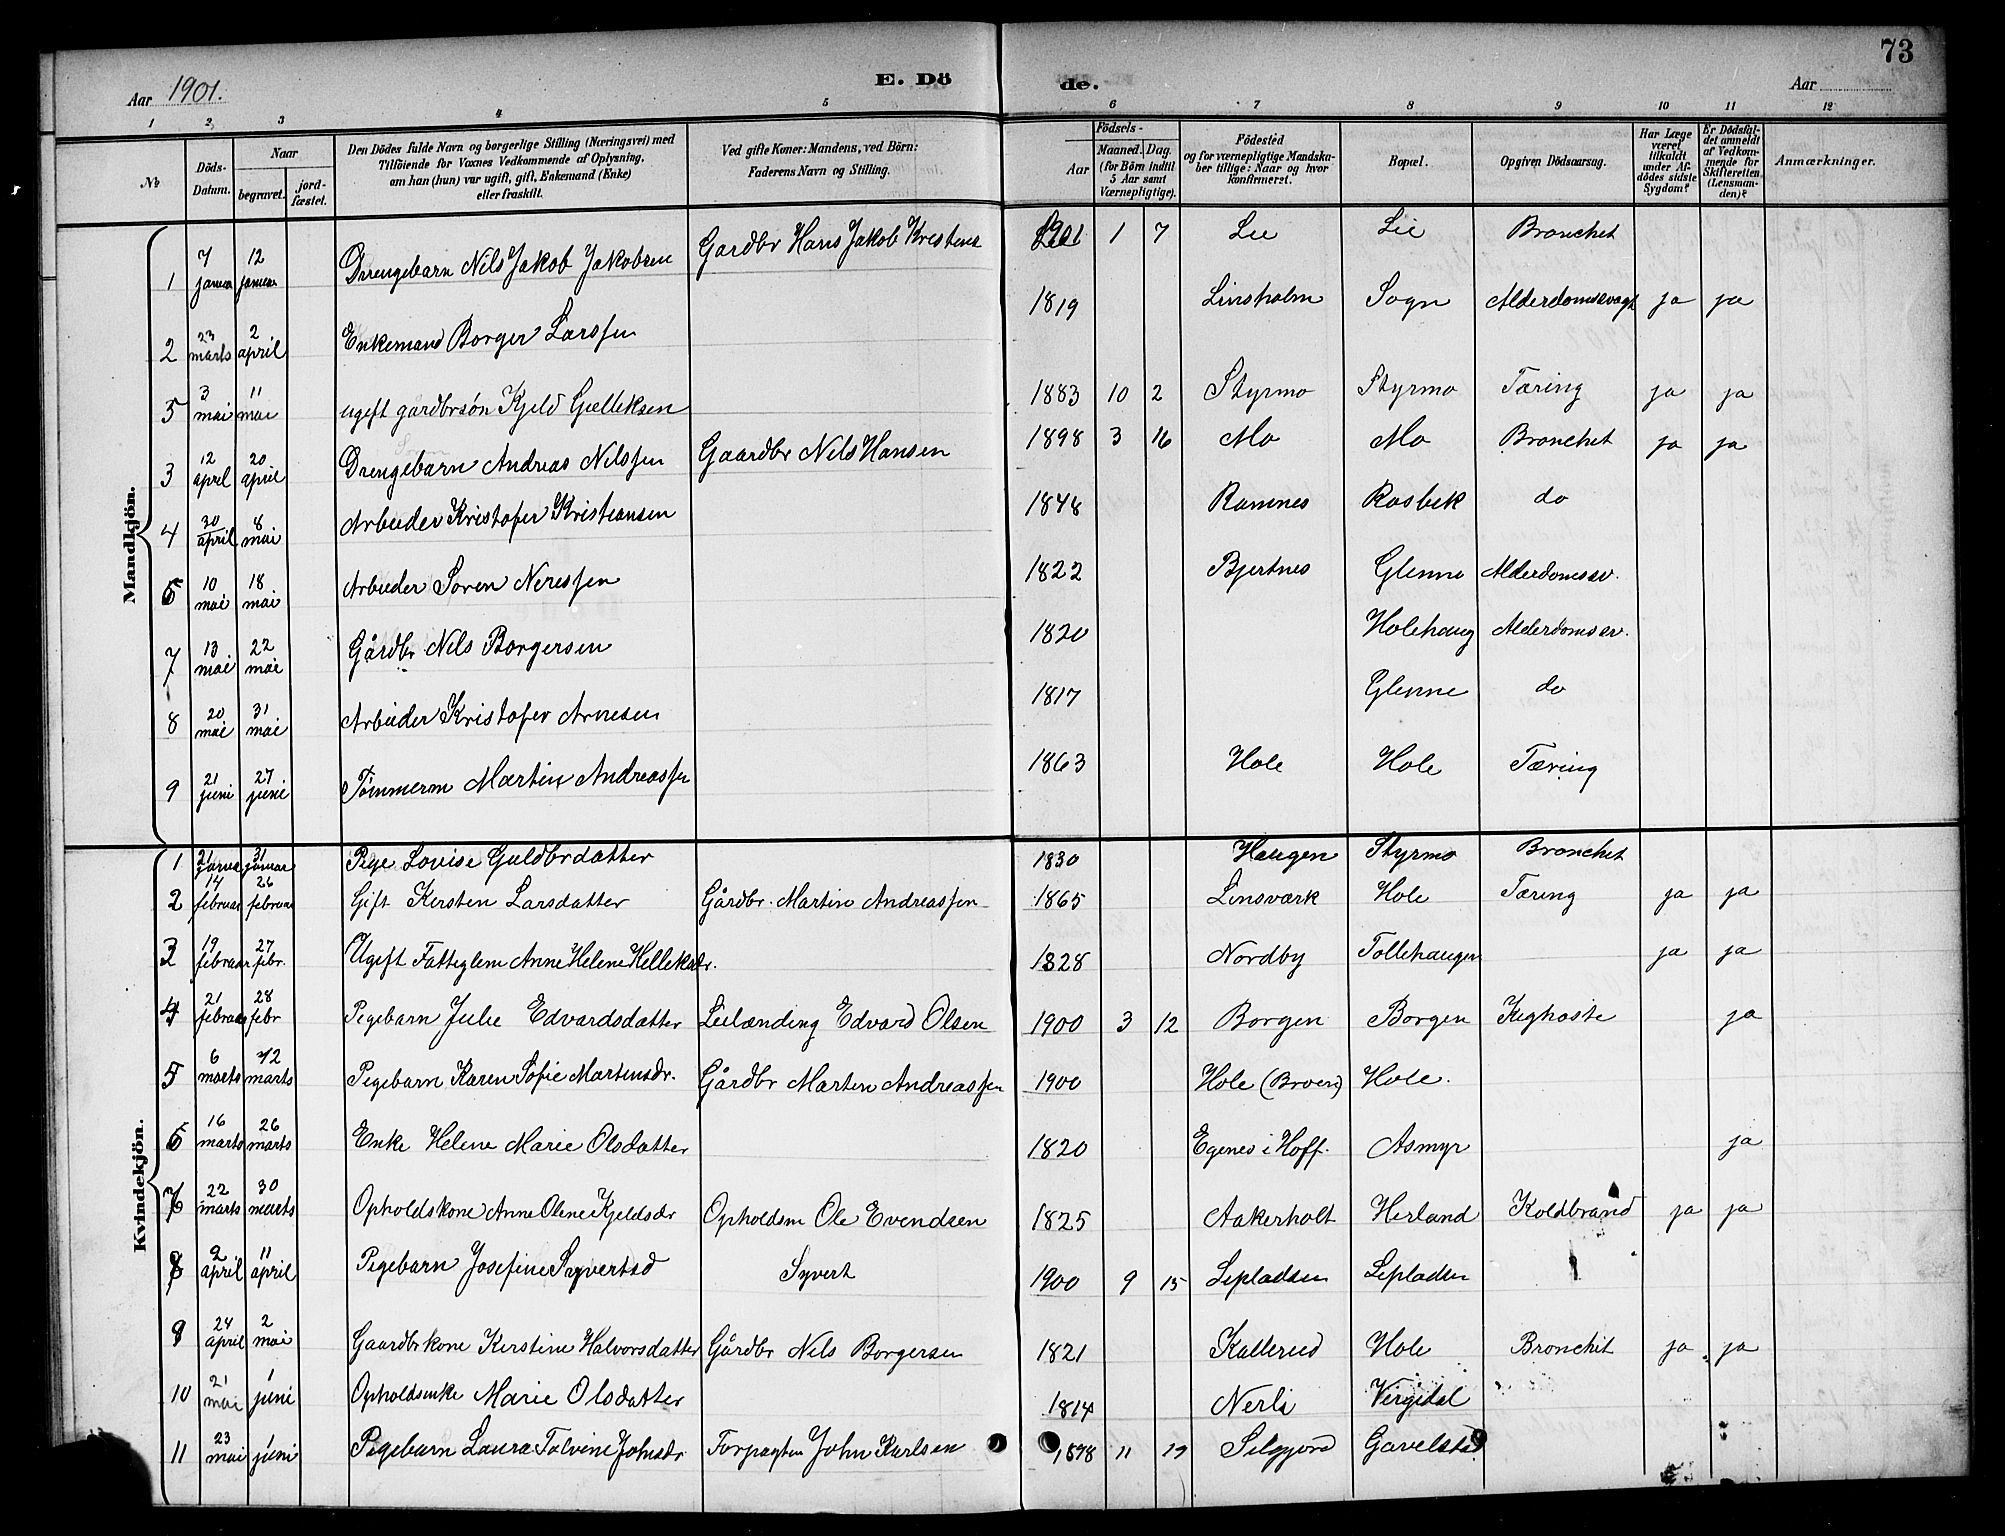 73
Aar 1901.
E. Dö
de.
Aar
1 2 3 4 5 6 7 8 9 10 11 12
No
Döds-Datum.
Naar
begravet.
jord-fæstet.
Den Dödes fulde Navn og borgerlige Stilling (Næringsvei) med
Tilföiende for Voxnes Vedkommende af Oplysning,
om han (hun) var ugift, gift, Enkemand (Enke)
eller fraskilt.
Ved gifte Koner: Mandens, ved Börn:
Faderens Navn og Stilling.
Födsels-
Aar
Maaned. Dag.
(for Börn indtil
5 Aar samt
Værnepligtige).
Födested
og for værnepligtige Mandska-
ber tillige: Naar og hvor
konfirmeret.
Bopæl.
Opgiven Dödsaarsag.
Har Læge
været
tilkaldt
under Af-
dödes sidste
Sygdom?
Er Dödsfal-
det anmeldt
af Vedkom-
mende for
Skifteretten
(Lensman-
den)?
Anmærkninger.
Mandkjön.
1 7 januar 12 januar Drengebarn Nils Jakob Jakobsen Gardbr Hans Jakob Kristens 1901 1 7 Lie Lie Bronchit
2 23 marts 2 april Enkemand Borger Larssen 1819 Linsholm Sogn Alderdomssvagh ja ja
5 3 mai 11 mai ugift gårdbrsön Kjeld Gulleksen 1883 10 2 Styrmo Styrmo Tæring ja ja
3 12 april 20 april Drengebarn Andreas Nilssen Gaardbr Nils Hansen 1898 3 16 Mo Mo Bronchit ja ja
4 30 april 8 mai Arbeider Kristofer Kristiansen 1848 Ramnes Rosbek do
6 10 mai 18 mai Arbeider Soren Neressen 1822 Bjertnes Glenne Alderdomssv.
7 13 mai 22 mai Gårdbr Nils Borgersen 1820 Holehaug Alderdomssv.
8 20 mai 31 mai Arbeider Kristofer Arnesen 1817 Glenne do
9 21 juni 27 juni Tömmerm Martin Andreassen 1863 Hole Hole Tæring
Kvindekjön.
1 21 januar 31 januar Pige Lovise Guldbrdatter 1830 Haugen Styrmo Bronchit
2 14 februar 26 februar Gift Kirsten Larsdatter Gårdbr. Martin Andreassen 1865 Linsværk Hole Tæring ja ja
3 19 februar 27 febr. Ugift Fattiglem Anne Helene Helleksdr. 1828 Nordby Tollehaugen ja ja
4 21 februar 28 febr Pigebarn Julie Edvardsdatter Leilænding Edvard Olsen 1900 3 12 Borgen Borgen Kighoste ja
5 6 marts 12 marts Pigebarn Karen Sofie Martinsdr. Gårdbr Martin Andreassen 1900 Hole (Broen) Hole.
6 16 marts 26 marts Enke Helene Marie Olsdatter 1820 Egenes i Hoff. Asmyr ja
7 22 marts 30 marts Opholdskone Anne Oline Kjeldsdr Opholdsm Ole Evendsen 1825 Aakerholt Herland Koldbrand ja ja
8 2 april 11 april Pigebarn Josefine Syvertsd Syvert 1900 9 15 Lepladsen Lepladsen
9 24 april 2 mai Gaardbrkone Kirstine Halvorsdatter Gårdbr Nils Borgersen 1821 Kallerud Hole Bronchit ja ja
10 21 mai 1 juni Opholdsenke Marie Olsdatter 1814 Nerli Virgidal
11 23 mai 1 juni Pigebarn Laura Talvine Johnsdr Forpagter John Karlsen 1898 11 Gavelstad